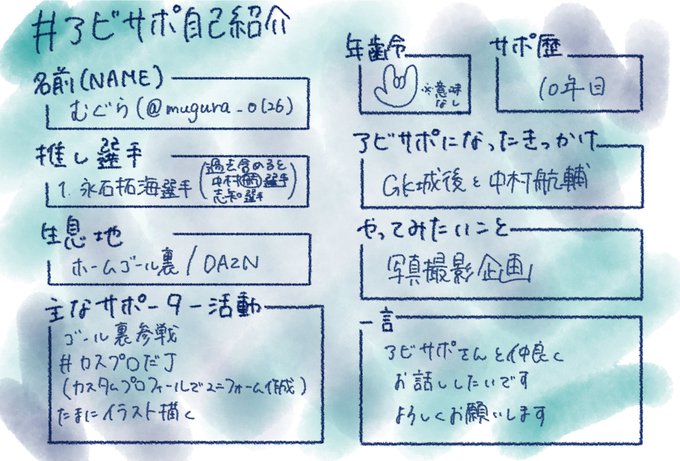 #アビサポ自己紹介
名前(NAME)
むぐら(@mugura_0126)
推し選手
1. 永石拓海選手(過去含めると
中村航輔選手
志知選手)
生息地
ホームゴール裏/DAZN
主なサポーター活動
ゴール裏参戦
#カスプロだJ
(カスタムプロフィールでユニフォーム作成)
たまにイラスト描く
年齢
※意味
なし
サポ歴
10年目
アビサポになったきっかけ
GK城後と中村航輔
やってみたいこと
写真撮影企画
一言
アビサポさんと仲良く
お話ししたいです
よろしくお願いします